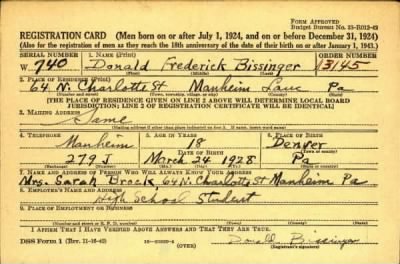 FORM APPROVED
Budget Bureau No. 33-R012-42
REGISTRATION CARD (Men born on or after July 1, 1924, and on or before December 31, 1924)
(Also for the registration of men as they reach the 18th anniversary of the date of their birth on or after January 1, 1943.)
SERIAL NUMBER 1. NAME (Print) ORDER NUMBER
W 740 Donald Frederick Bissinger 13145
(First) (Middle) (Last)
2. PLACE OF RESIDENCE (Print)
64 N. Charlotte St Manheim Lanc Pa
(Number and street) (Town, township, village, or city) (County) (State)
[THE PLACE OF RESIDENCE GIVEN ON LINE 2 ABOVE WILL DETERMINE LOCAL BOARD
JURISDICTION; LINE 2 OF REGISTRATION CERTIFICATE WILL BE IDENTICAL]
3. MAILING ADDRESS
Same
[Mailing address if other than place indicated on line 2. If same, insert word same]
4. TELEPHONE 5. AGE IN YEARS 6. PLACE OF BIRTH
Manheim 18 Denver
DATE OF BIRTH (Town or county)
279J March 24 1928 Pa
(Exchange) (Number) (Mo.) (Day) (Yr.) (State or country)
7. NAME AND ADDRESS OF PERSON WHO WILL ALWAYS KNOW YOUR ADDRESS
Mrs. Sarah Brock 64 N. Charlotte St Manheim Pa
8. EMPLOYER'S NAME AND ADDRESS
High School Student
9. PLACE OF EMPLOYMENT OR BUSINESS
(Number and street or R. F. D. number) (Town) (County) (State)
I AFFIRM THAT I HAVE VERIFIED ABOVE ANSWERS AND THAT THEY ARE TRUE.
DSS Form 1 (Rev. 11-16-42) (OVER) Donald Bissinger
(Registrant's signature)